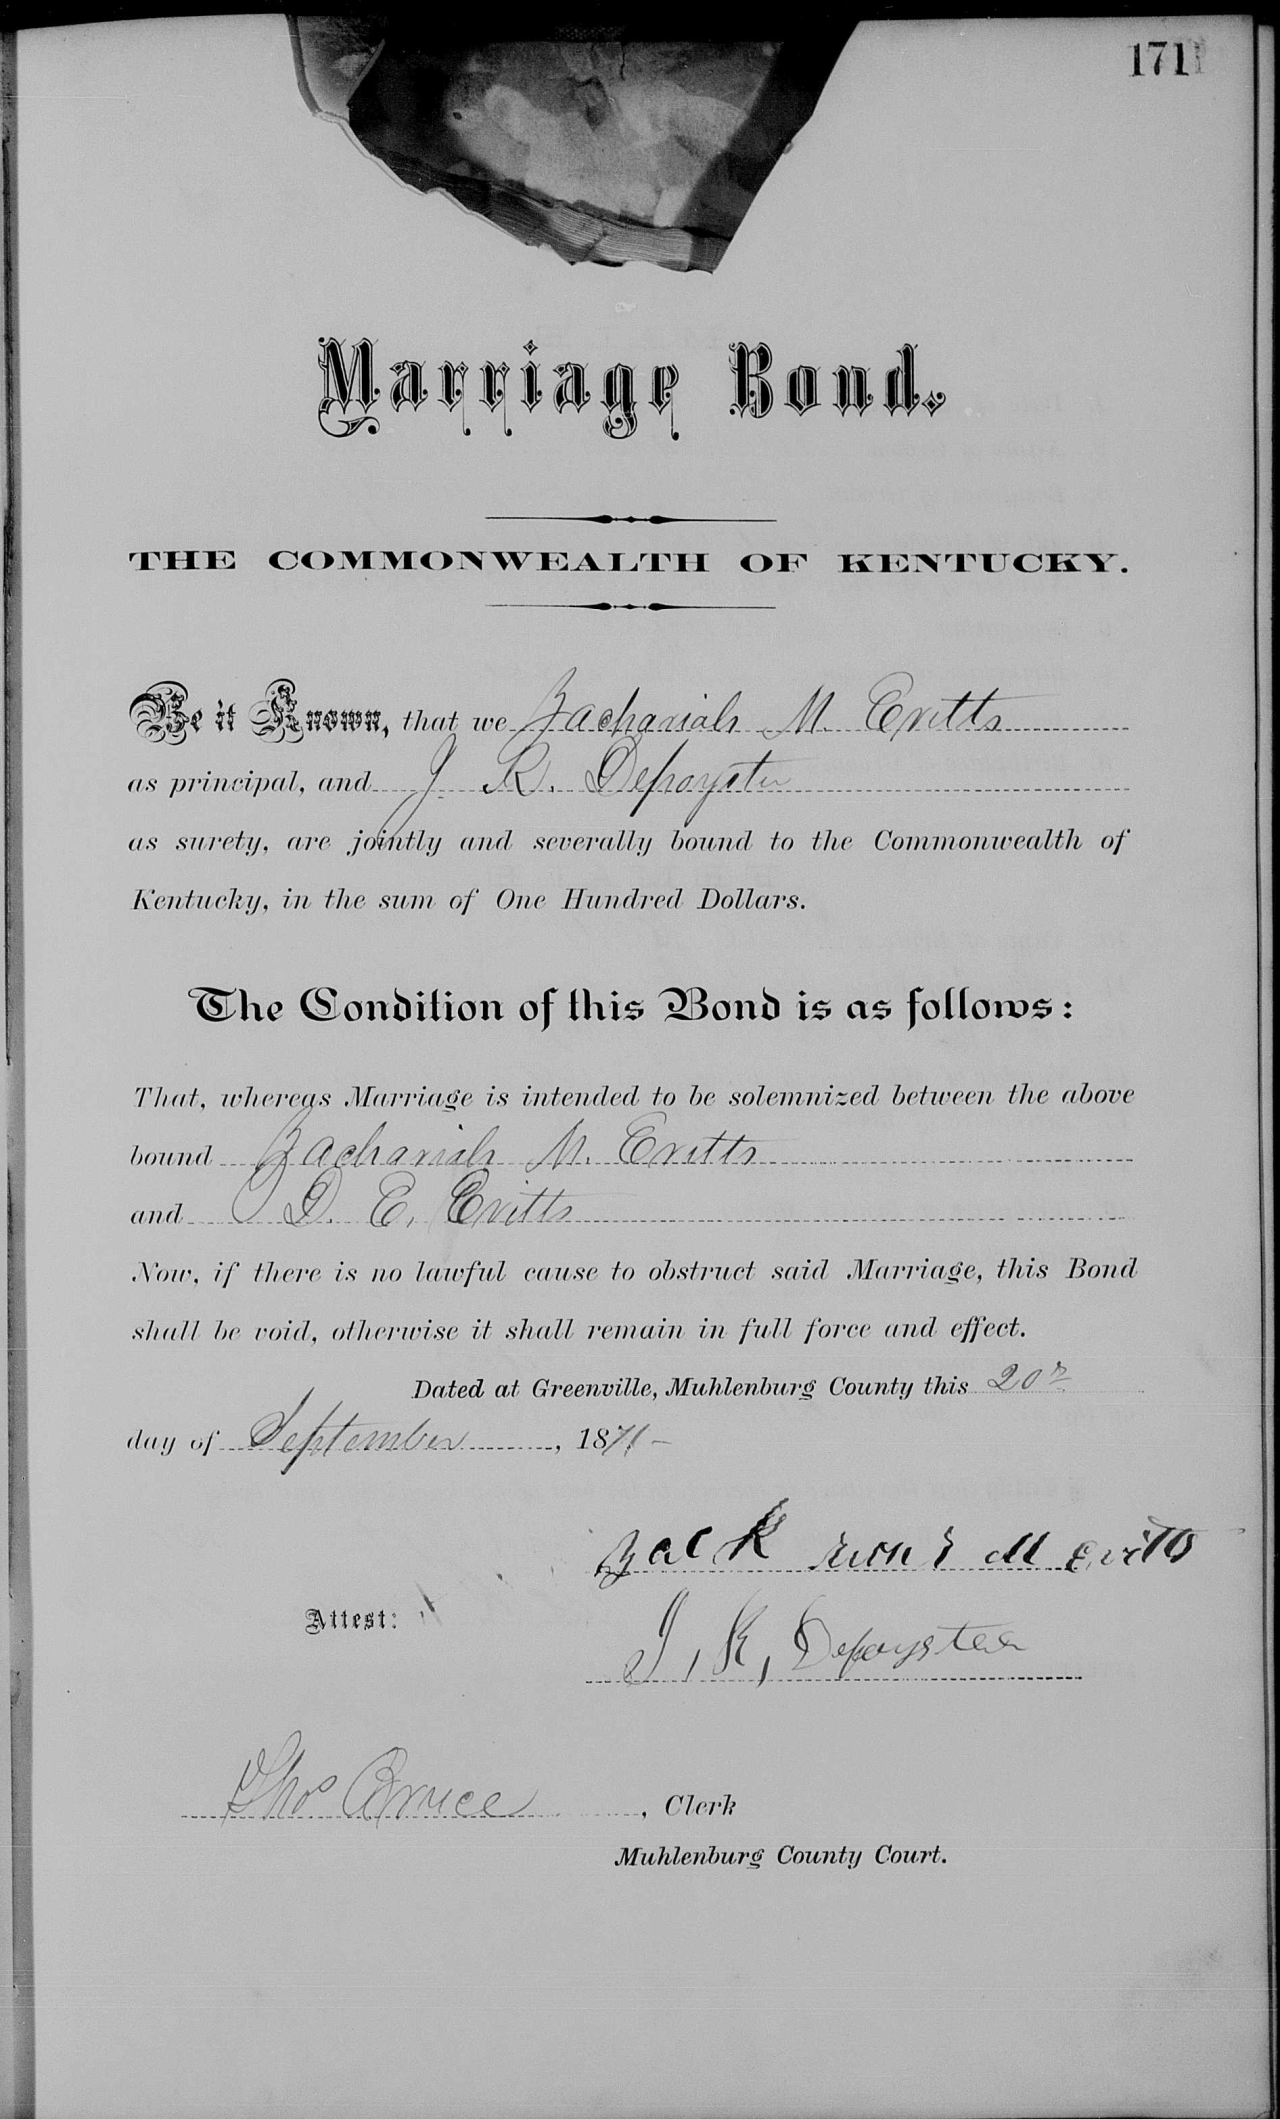 171
Marriage Bond.
THE COMMONWEALTH OF KENTUCKY.
Be it Known, that we Zachariah M. Evitts
as principal, and J. K. Depoyster
as surety, are jointly and severally bound to the Commonwealth of
Kentucky, in the sum of One Hundred Dollars.
The Condition of this Bond is as follows:
That, whereas Marriage is intended to be solemnized between the above
bound Zachariah M. Evitts
and D. E. Evitts
Now, if there is no lawful cause to obstruct said Marriage, this Bond
shall be void, otherwise it shall remain in full force and effect.
Dated at Greenville, Muhlenburg County this 20th
day of September, 1871-
Zack M Evitts
Attest:
J, K, Depoyster
Thos Bruce, Clerk
Muhlenburg County Court.